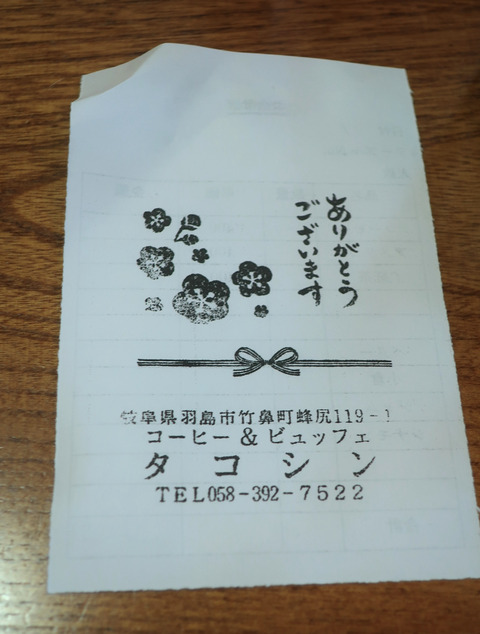 ありがとう
ございます
岐阜県羽島市竹鼻町蜂尻119-1
コーヒー&ビュッフェ
タコシン
TEL058-392-7522